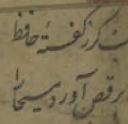 گر ز گفتهٔ حافظ
برقص آورد مسیحا را